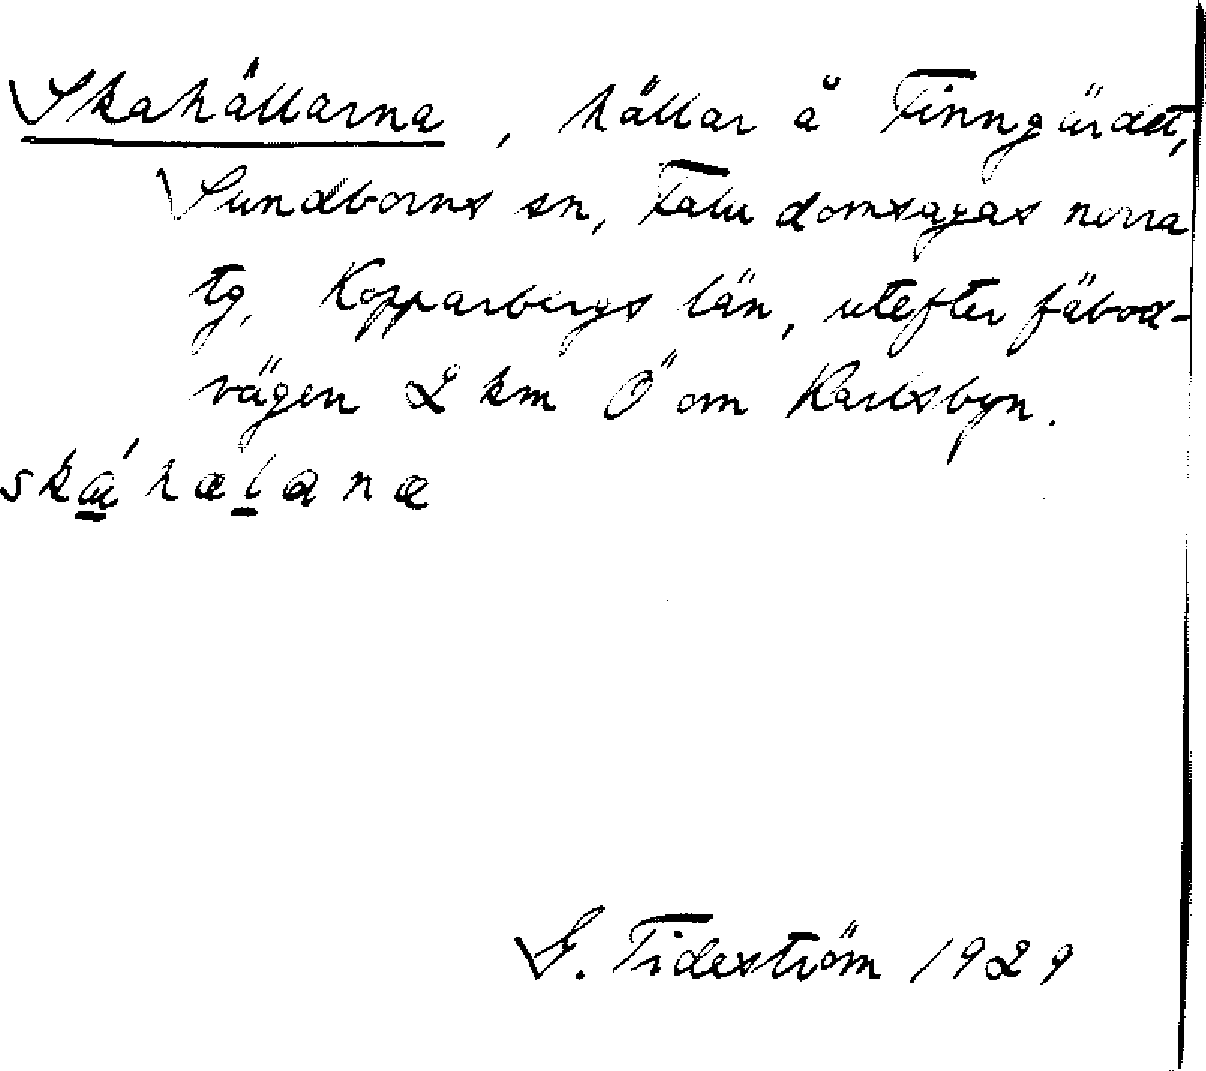 Skahällarna, hällar å Finngärdet,
Sundborns sn, Falu domsagas norra
tg, Kopparbergs län, utefter fäbod-
vägen 2 km Ö om Karlsbyn.
skáhælana
G. Tideström 1929